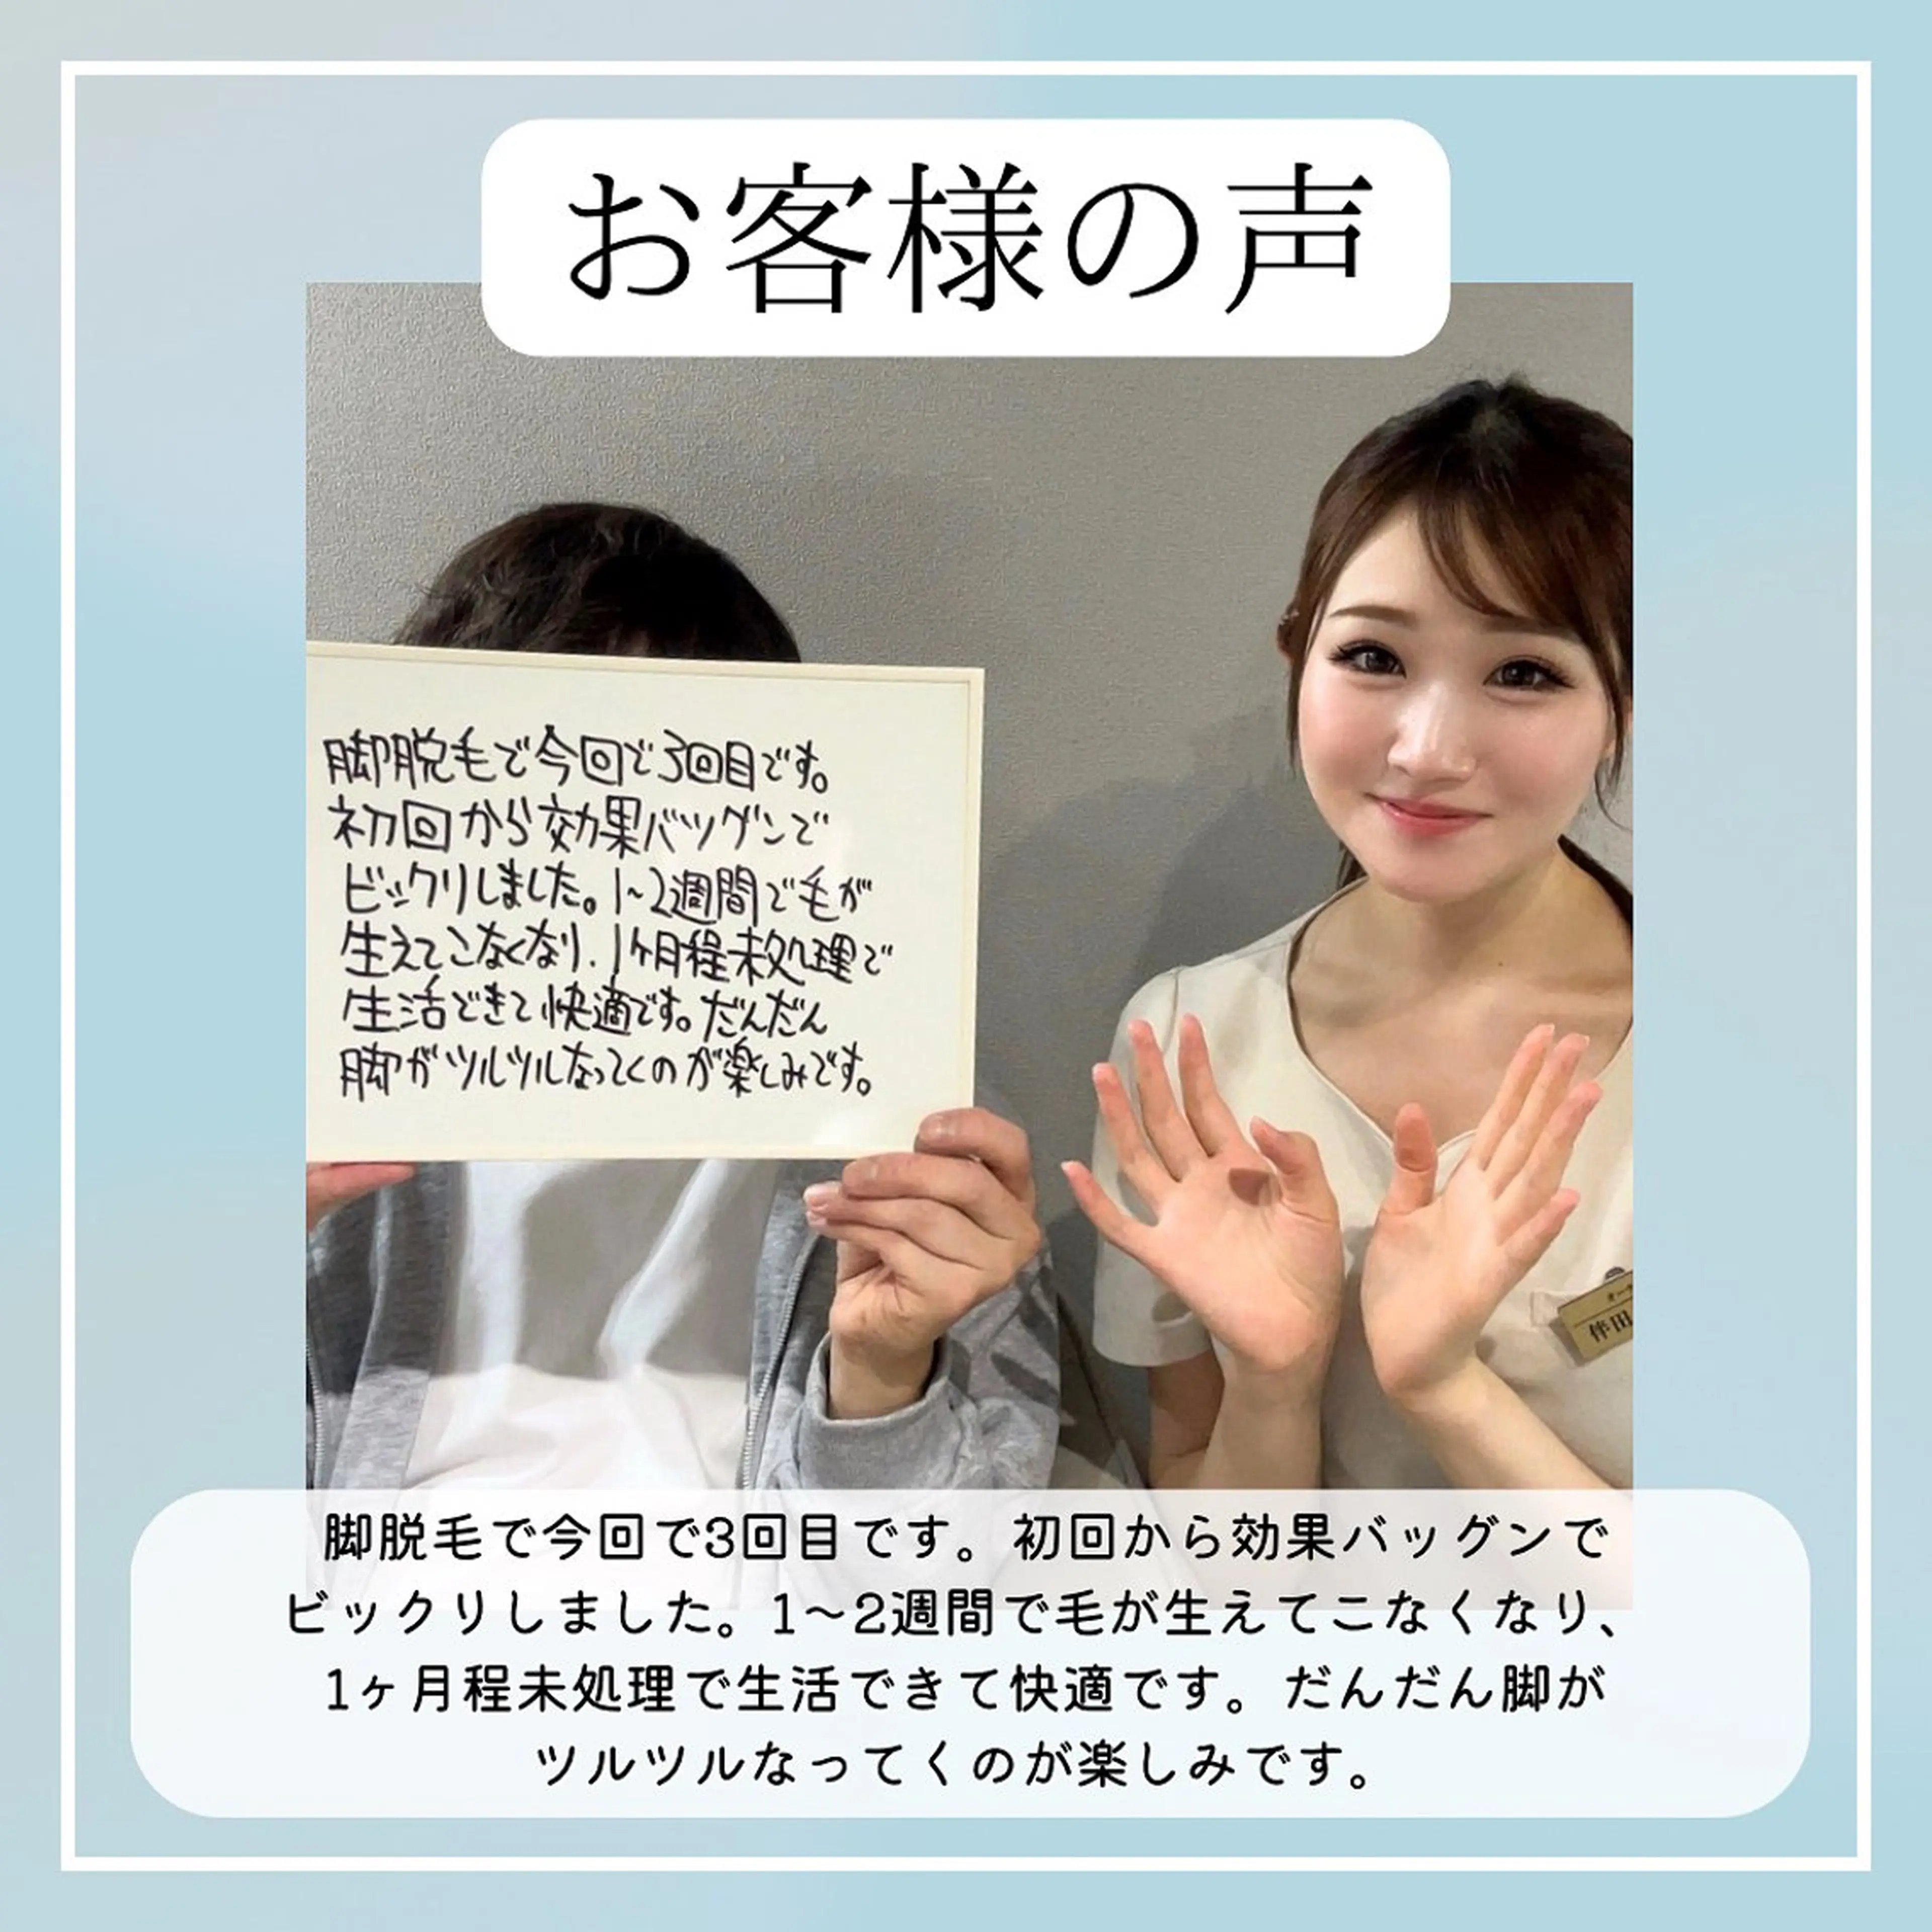 お客様の声
脚脱毛で今回で3回目です。
初回から効果バツグンで
ビックリしました。1~2週間で毛が
生えてこなくなり、1ヶ月程未処理で
生活できて快適です。だんだん
脚がツルツルなってくのが楽しみです。
伴田
脚脱毛で今回で3回目です。初回から効果バッグンで
ビックリしました。1〜2週間で毛が生えてこなくなり、
1ヶ月程未処理で生活できて快適です。だんだん脚が
ツルツルなってくのが楽しみです。